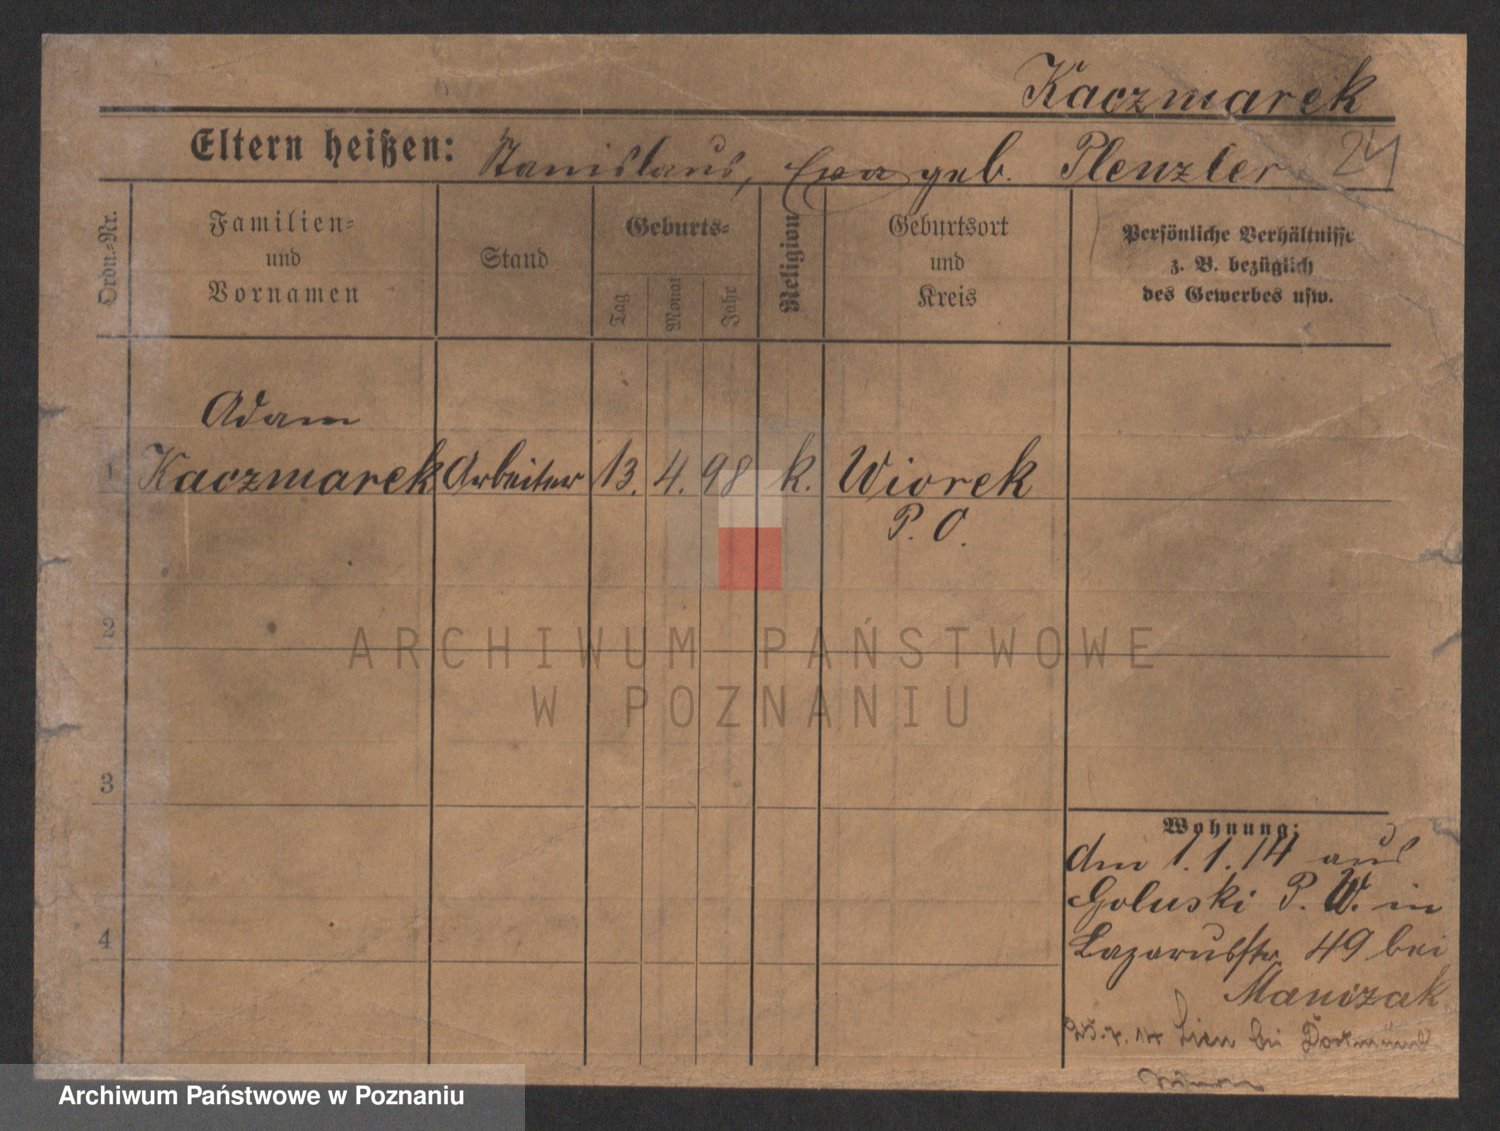 Kaczmarek
Eltern heißen: Stanislaus, Eva geb. Plenzler 24
Ordn.-Nr.
Familien-
und
Vornamen
Stand
Geburts-
Tag
Monat
Jahr
Religion
Geburtsort
und
Kreis
Persönliche Verhältnisse
z. B. bezüglich
des Gewerbes usw.
Adam
1 Kaczmarek Arbeiter 13. 4. 98 k. Wiorek
P. O.
2
ARCHIWUM PAŃSTWOWE
W POZNANIU
3
Wohnung:
den 1.1.14 aus
Goluski P. W. in
4
Lazarusstr. 49 bei
Manizak
25.7.14 bei Dortmund
Archiwum Państwowe w Poznaniu